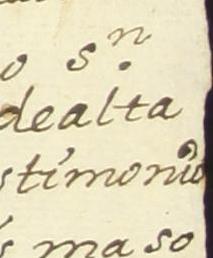 o sⁿ.
dealta
stimonio
s maso